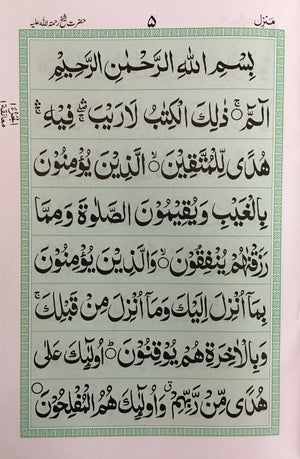 منزل ۵ حضرت شیخ رحمۃ اللہ علیہ
بِسْمِ اللّٰهِ الرَّحْمٰنِ الرَّحِیْمِ
الٓمّٓ ۚ ذٰلِكَ الْكِتٰبُ لَا رَیْبَ ۛ فِیْهِ ۛ
هُدًی لِّلْمُتَّقِیْنَ ۙ الَّذِیْنَ یُؤْمِنُوْنَ
بِالْغَیْبِ وَیُقِیْمُوْنَ الصَّلٰوةَ وَمِمَّا
رَزَقْنٰهُمْ یُنْفِقُوْنَ ۙ وَالَّذِیْنَ یُؤْمِنُوْنَ
بِمَاۤ اُنْزِلَ اِلَیْكَ وَمَاۤ اُنْزِلَ مِنْ قَبْلِكَ ۚ
وَبِالْاٰخِرَةِ هُمْ یُوْقِنُوْنَ ؕ اُولٰٓئِكَ عَلٰی
هُدًی مِّنْ رَّبِّهِمْ ۗ وَاُولٰٓئِكَ هُمُ الْمُفْلِحُوْنَ